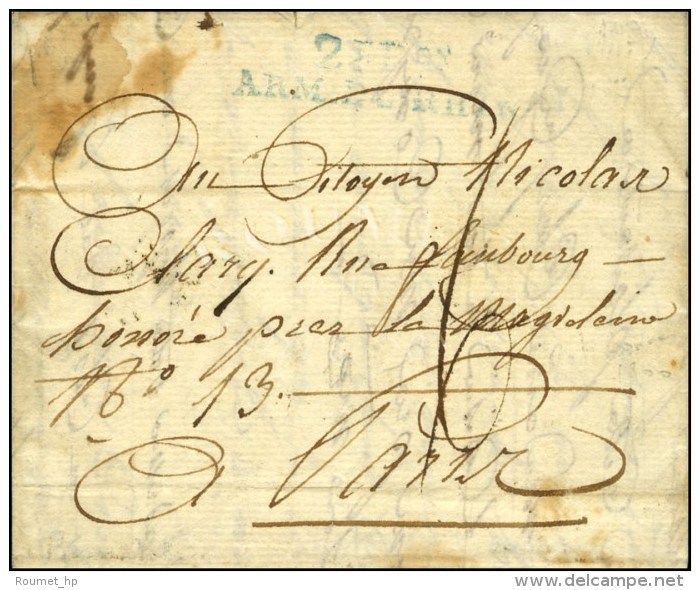 ARM.
Au Citoyen Nicolas
Clary. Rue faubourg
honoré prez la Magdelaine
N° 13.
A Paris
Roumet_hp
© delcampe.net